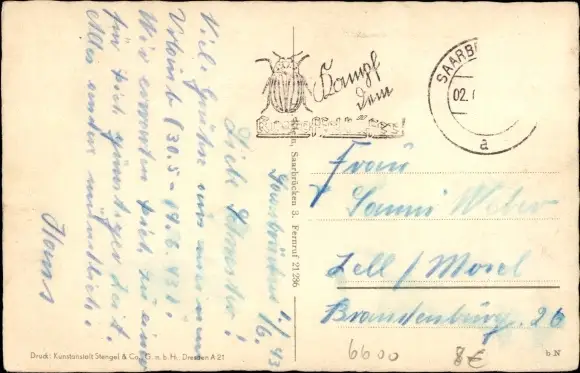 Saarbrücken
1./6. 43
Liebe Schwester!
Viele Grüße aus unserem
Urlaub (30.5 – 19.6.43).
Wir erwarten dich zu einer
für dich günstigen Zeit.
Alles andere mündlich.
Hans
Kampf
dem
Kartoffelkäfer!
SAARBR
02.
a
Saarbrücken 3. Fernruf 21286
Frau
Sanni Weber
Zell / Mosel
Brandenburg. 26
Druck: Kunstanstalt Stengel & Co., G. m. b. H., Dresden A 21
6600
8€
b N